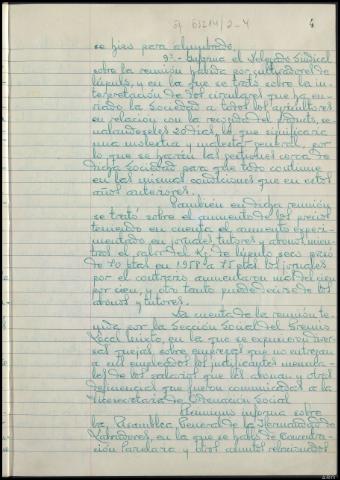 4
se hizo para alumbrado.
9º.- Informa el Delegado Sindical
sobre la reunión habida por cultivadores de
lúpulo, y en la que se trató sobre la in-
terpretación de las circulares que ha en-
viado la Sociedad a todos los agricultores
en relación con la recogida del producto, se-
ñalandoseles 20 días, lo que significaria
una molestia y malestar general, por
lo que se harán las gestiones cerca de
dicha Sociedad para que todo continue
en las mismas condiciones que en estos
años anteriores.
También en dicha reunión
se trató sobre el aumento de los precios
teniendo en cuenta el aumento experi-
mentado en jornales tutores y abonos, mien-
tras el valor del Kg. de lúpulo seco pasó
de 70 ptas en 1958 a 75 ptas. los jornales
por el contrario aumentaron más del cien
por cien, y otro tanto puede decirse de los
abonos y tutores.
Da cuenta de la reunión te-
nida por la Sección Social del Gremio
Local Mixto, en la que se expusieron diver-
sas quejas, sobre empresas que no entregan
a sus empleados los justificantes mensua-
les de los salarios que les abonan y otras
deficiencias que fueron comunicadas a la
Vicesecretaria de Ordenación Social
Asimismo informa sobre
la Asamblea General de la Hermandad de
Labradores, en la que se habló de Concentra-
ción Parcelaria y otros asuntos relacionados